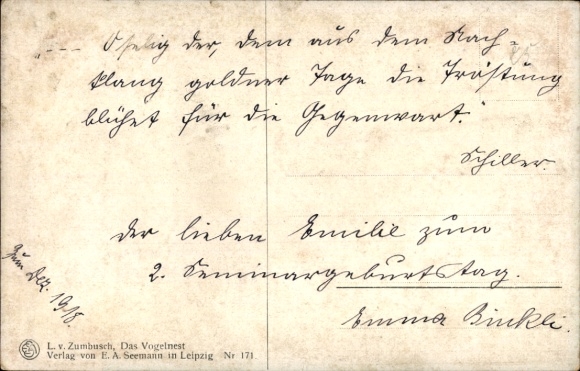 "---- O selig der, dem aus dem Nach-
klang goldner Tage die Tröstung
blühet für die Gegenwart."
Schiller.
Der lieben Emilie zum
2. Seminargeburtstag.
Emma Binkli.
Zum Dez. 1918.
L. v. Zumbusch, Das Vogelnest
Verlag von E. A. Seemann in Leipzig Nr 171